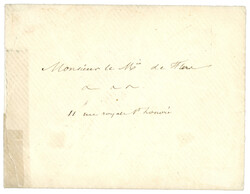 Monsieur le Mis de Flers
a a a
11 rue royale St honoré